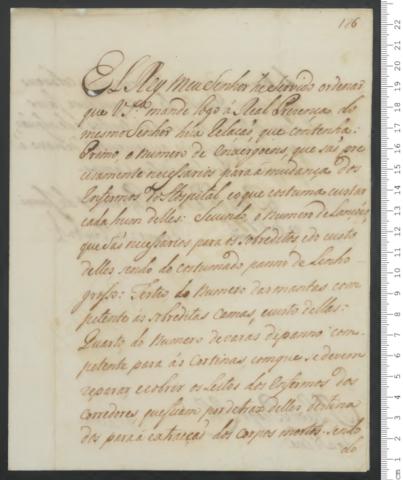 186
El Rey Meu Senhor he servido ordenar
que V. S.ª mande logo á Real Prezença do
mesmo Senhor húa Relaçaõ, que contenha:
Primo, o Numero de Enxergoens, que saõ pre
cizamente necessarios para a mudança dos
Enfermos do Hospital, e o que costuma custar
cada hum delles: Secundo, o Numero de Lançóes,
que saõ necessarios para os sobreditos, e do custo
delles sendo do costumado panno de Linho
grosso: Tertio do Numero das mantas com
petente ás sobreditas Camas, e custo dellas:
Quarto do Numero de varas de panno com-
petente para as Cortinas com que se devem
reparar, e cobrir os Leitos dos Enfermos dos
Corredores, que ficam por detraz delles, destina
dos para a extracçaõ dos corpos mortos, sendo
do